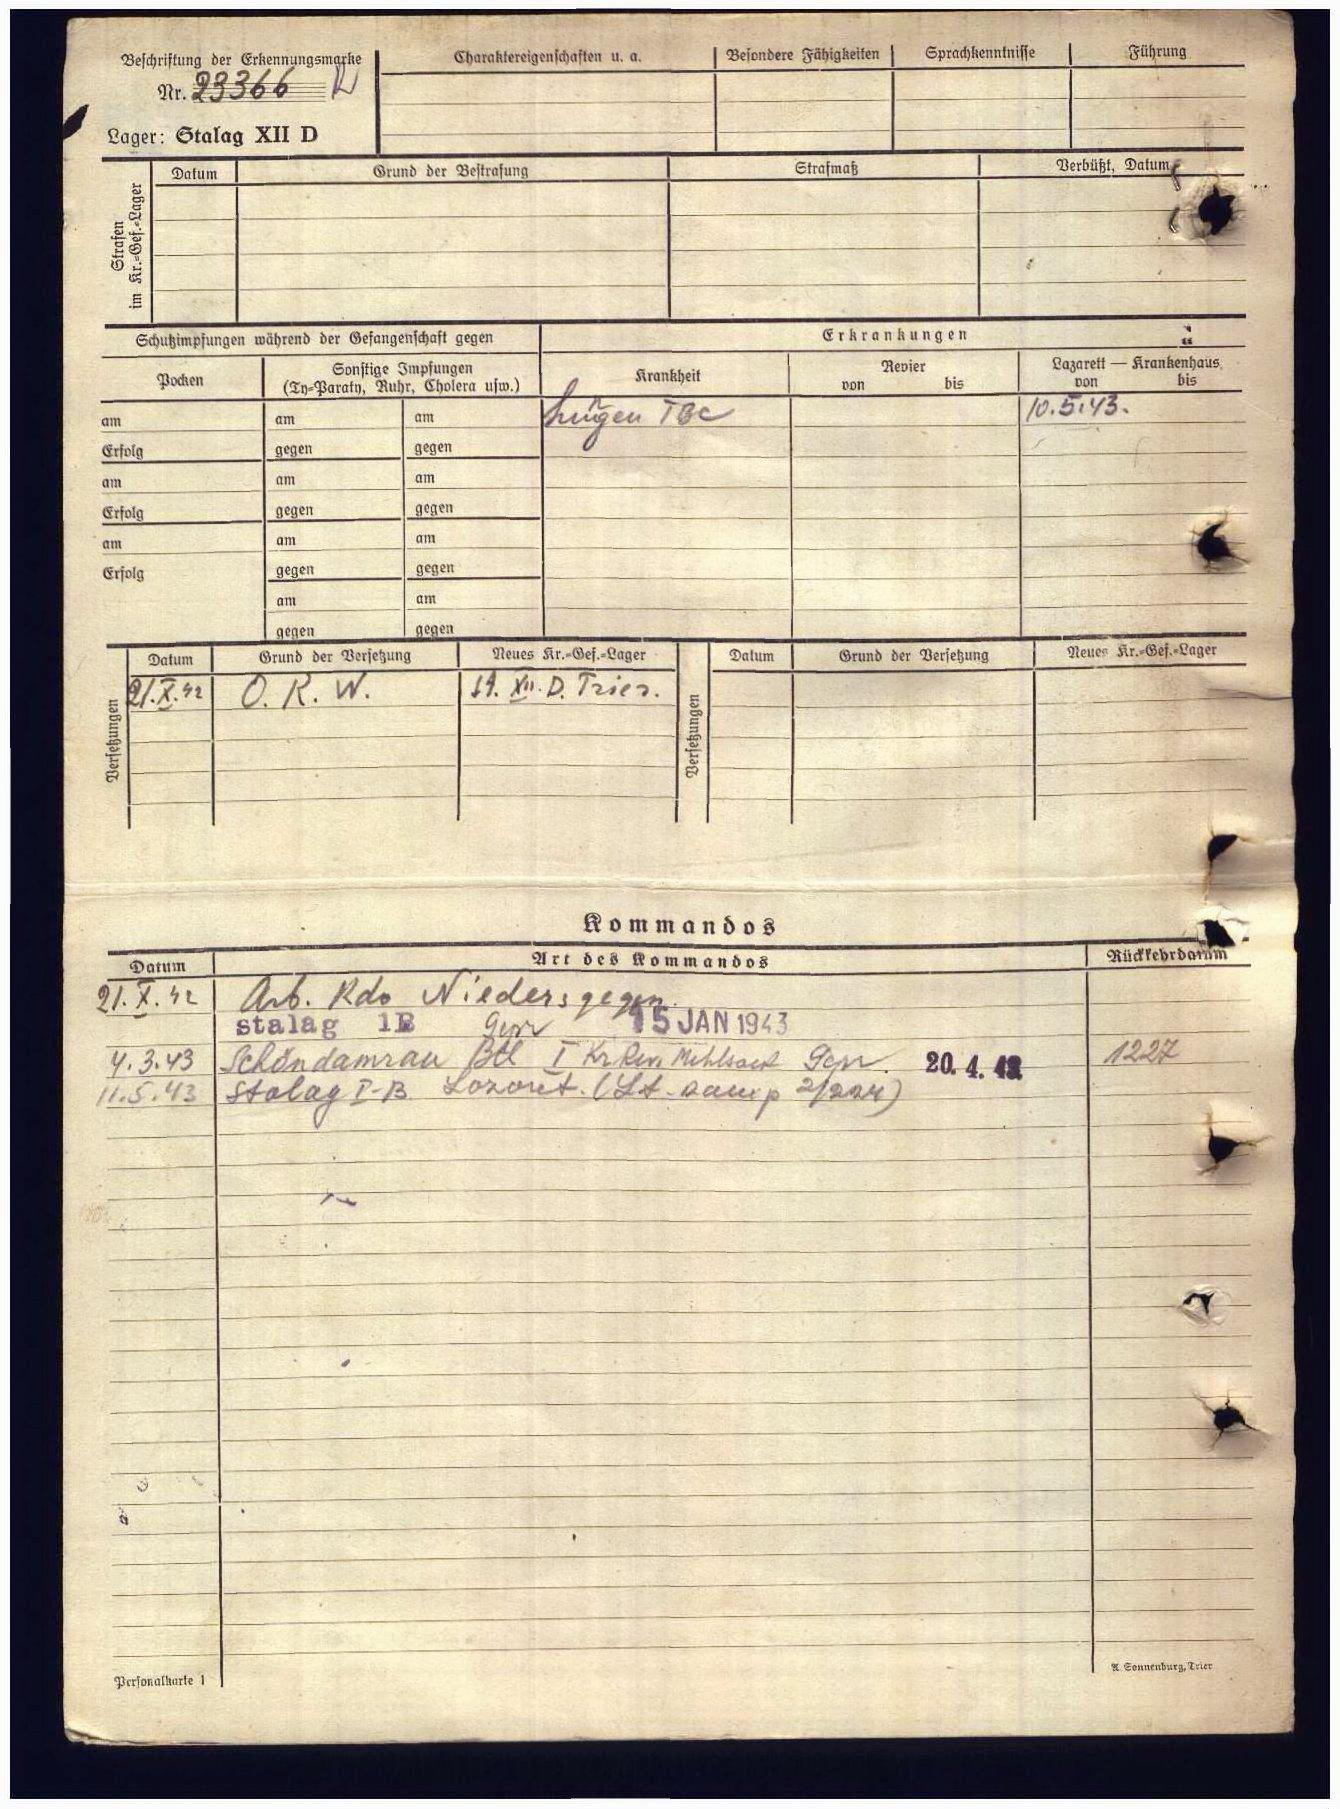 Beschriftung der Erkennungsmarke
Nr. 23366
Lager: Stalag XII D
Charaktereigenschaften u. a.
Besondere Fähigkeiten
Sprachkenntnisse
Führung
Strafen
im Kr.=Gef.=Lager
Datum
Grund der Bestrafung
Strafmaß
Verbüßt, Datum
Schutzimpfungen während der Gefangenschaft gegen
Erkrankungen
Pocken
Sonstige Impfungen
(Ty=Paraty, Ruhr, Cholera usw.)
Krankheit
Revier
von bis
Lazarett — Krankenhaus
von bis
am am am Lungen TBC 10.5.43.
Erfolg gegen gegen
am am am
Erfolg gegen gegen
am am am
Erfolg gegen gegen
am am
gegen gegen
Versetzungen
Datum Grund der Versetzung Neues Kr.=Gef.=Lager
21.X.42 O.K.W. St. XII. D. Trier.
Versetzungen
Datum Grund der Versetzung Neues Kr.=Gef.=Lager
Kommandos
Datum Art des Kommandos Rückkehrdatum
21.X.42 Arb. Kdo Niedersgegen.
stalag 1B 15 JAN 1943
4.3.43 Schöndamrau Btl I 20.4.43 1227
11.5.43 Stalag I-B Lazaret.
Personalkarte 1
A. Sonnenburg, Trier